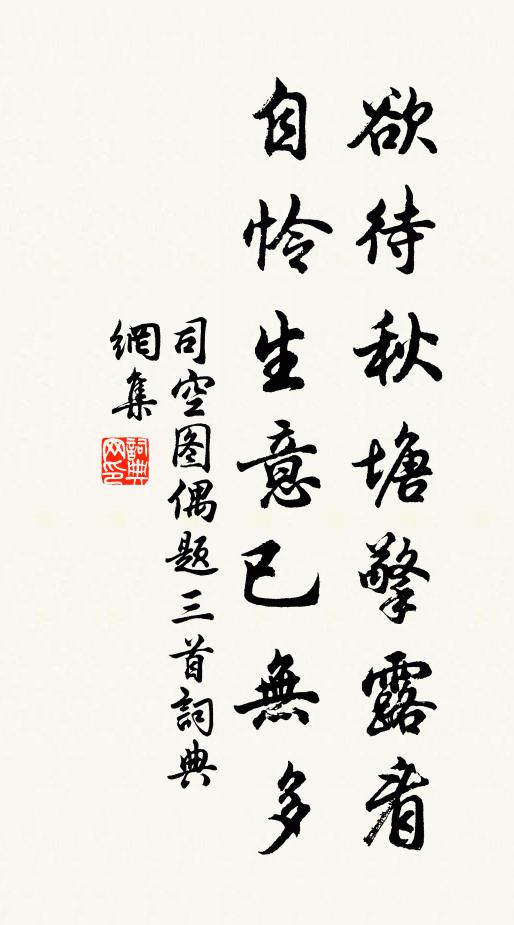 欲待秋塘擎露看
自怜生意已無多
司空图偶题三首詞典
網集
詞典
网印